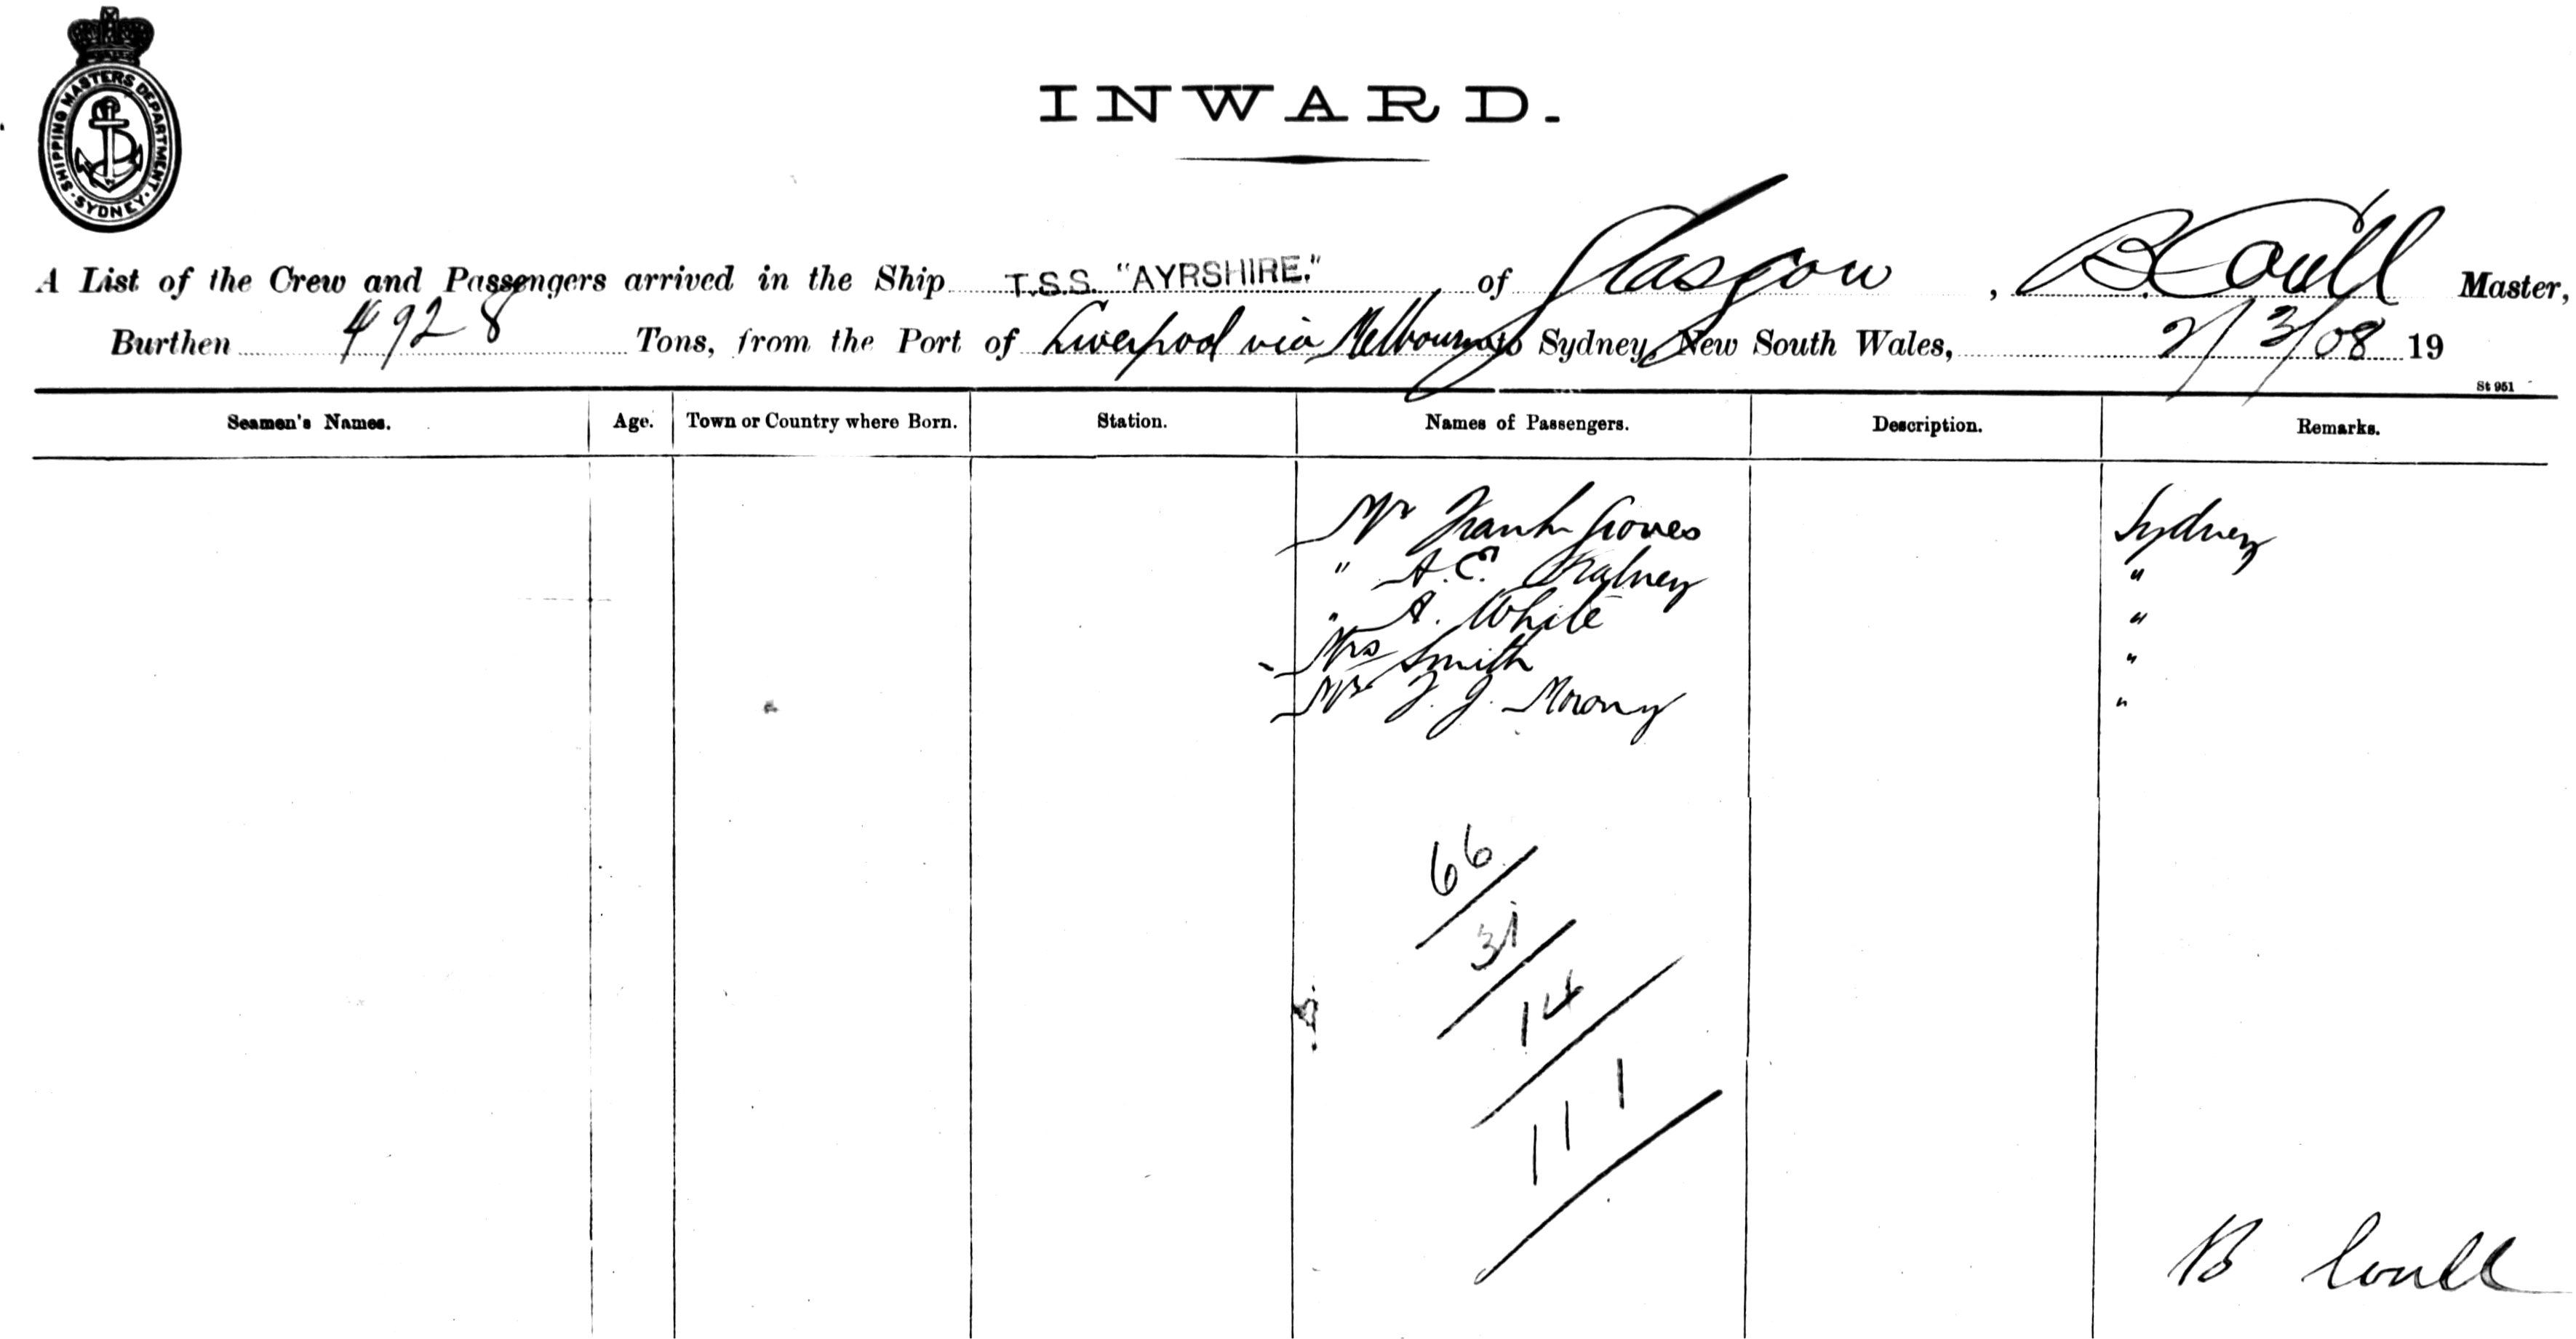 SHIPPING MASTERS DEPARTMENT · SYDNEY ·
INWARD.
A List of the Crew and Passengers arrived in the Ship T.S.S. "AYRSHIRE." of Glasgow, B. Coull Master,
Burthen 4928 Tons, from the Port of Liverpool via Melbourne to Sydney, New South Wales, 2/3/08 19
St 951
Seamen's Names. Age. Town or Country where Born. Station. Names of Passengers. Description. Remarks.
Mr Frank Groves Sydney
" A. E. "
" A. White "
Mrs Smith "
Mr J. J. Morony "
66
31
14
111
B Coull